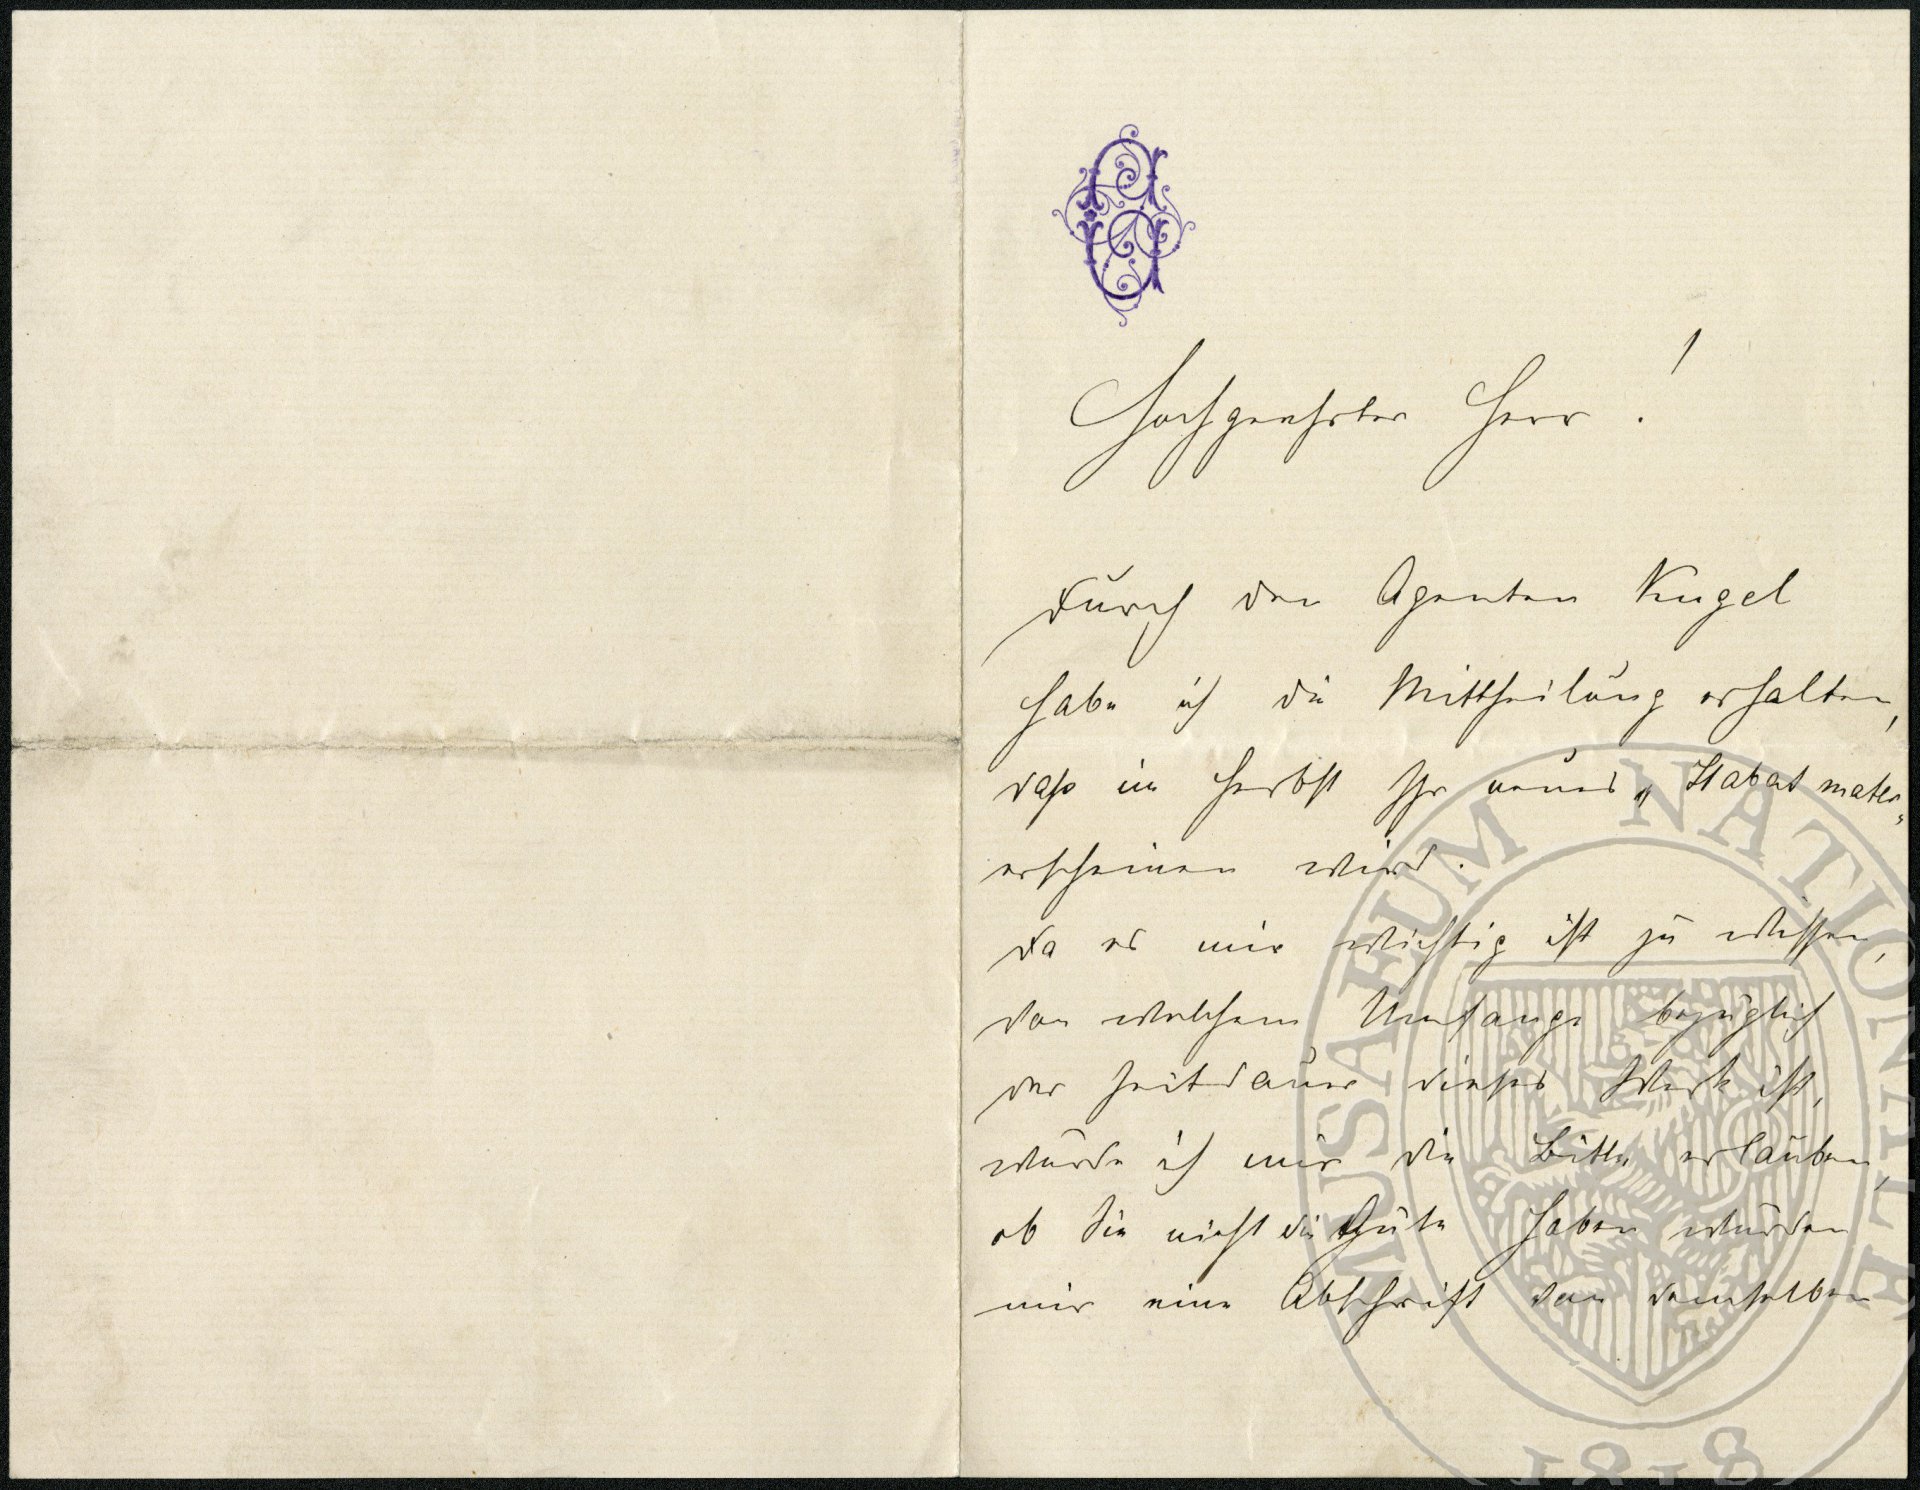 Hochgeehrter Herr!
Durch den Agenten Kugel
habe ich die Mittheilung erhalten,
daß im Herbst Ihr neues „Stabat mater"
erscheinen wird.
Da es mir wichtig ist zu wissen,
von welchem Umfange bezüglich
der Zeitdauer dieses Werk ist,
würde ich mir die Bitte erlauben,
ob Sie nicht die Güte haben würden
mir eine Abschrift von demselben
MUSAEUM NATIONALE
1818